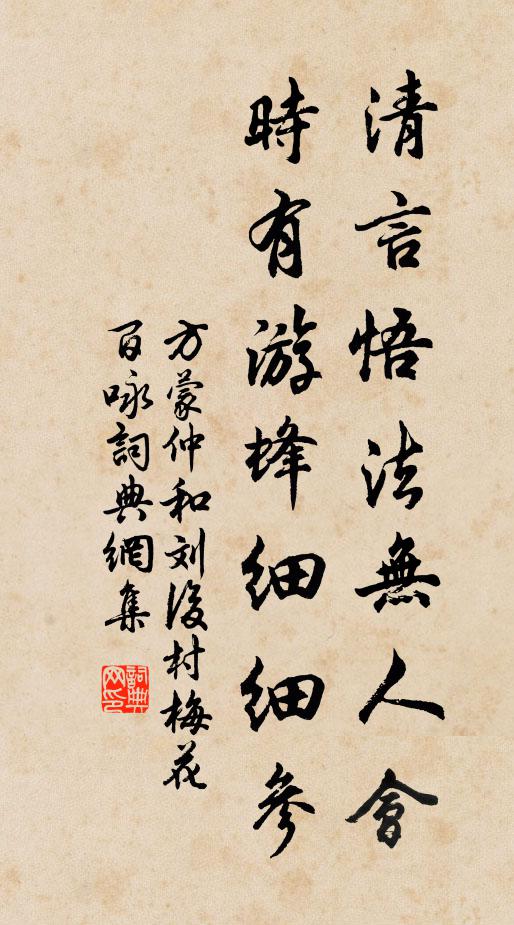 清言悟法無人會
時有游蜂細細參
方蒙仲和刘後村梅花
百咏詞典網集
詞典网印